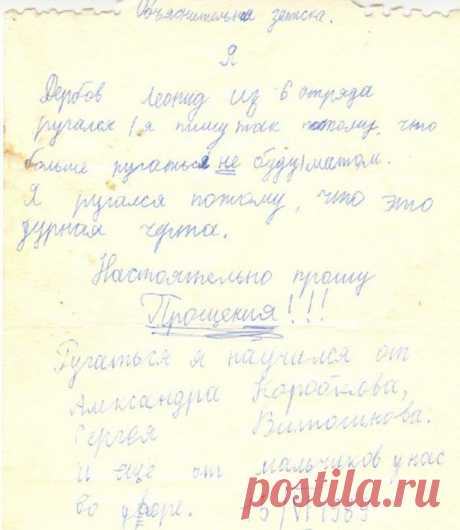 Объяснительная записка.
Я
Дербов Леонид из 6 отряда
ругался (я пишу так потому, что
больше ругаться не буду) матом.
Я ругался потому, что это
дурная черта.
Настоятельно прошу
Прощения!!!
Ругаться я научился от
Александра Коробкова,
Сергея
И ещё от мальчиков у нас
во дворе. 5/VI 1989
postila.ru